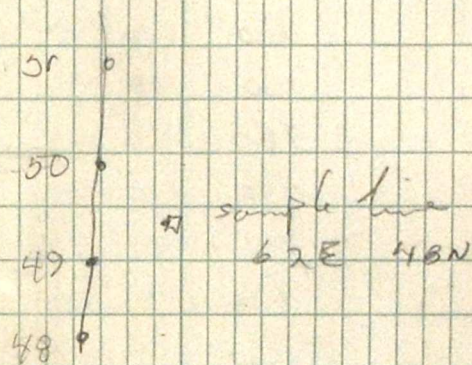 51
50
sample line
49 62E 48N
48